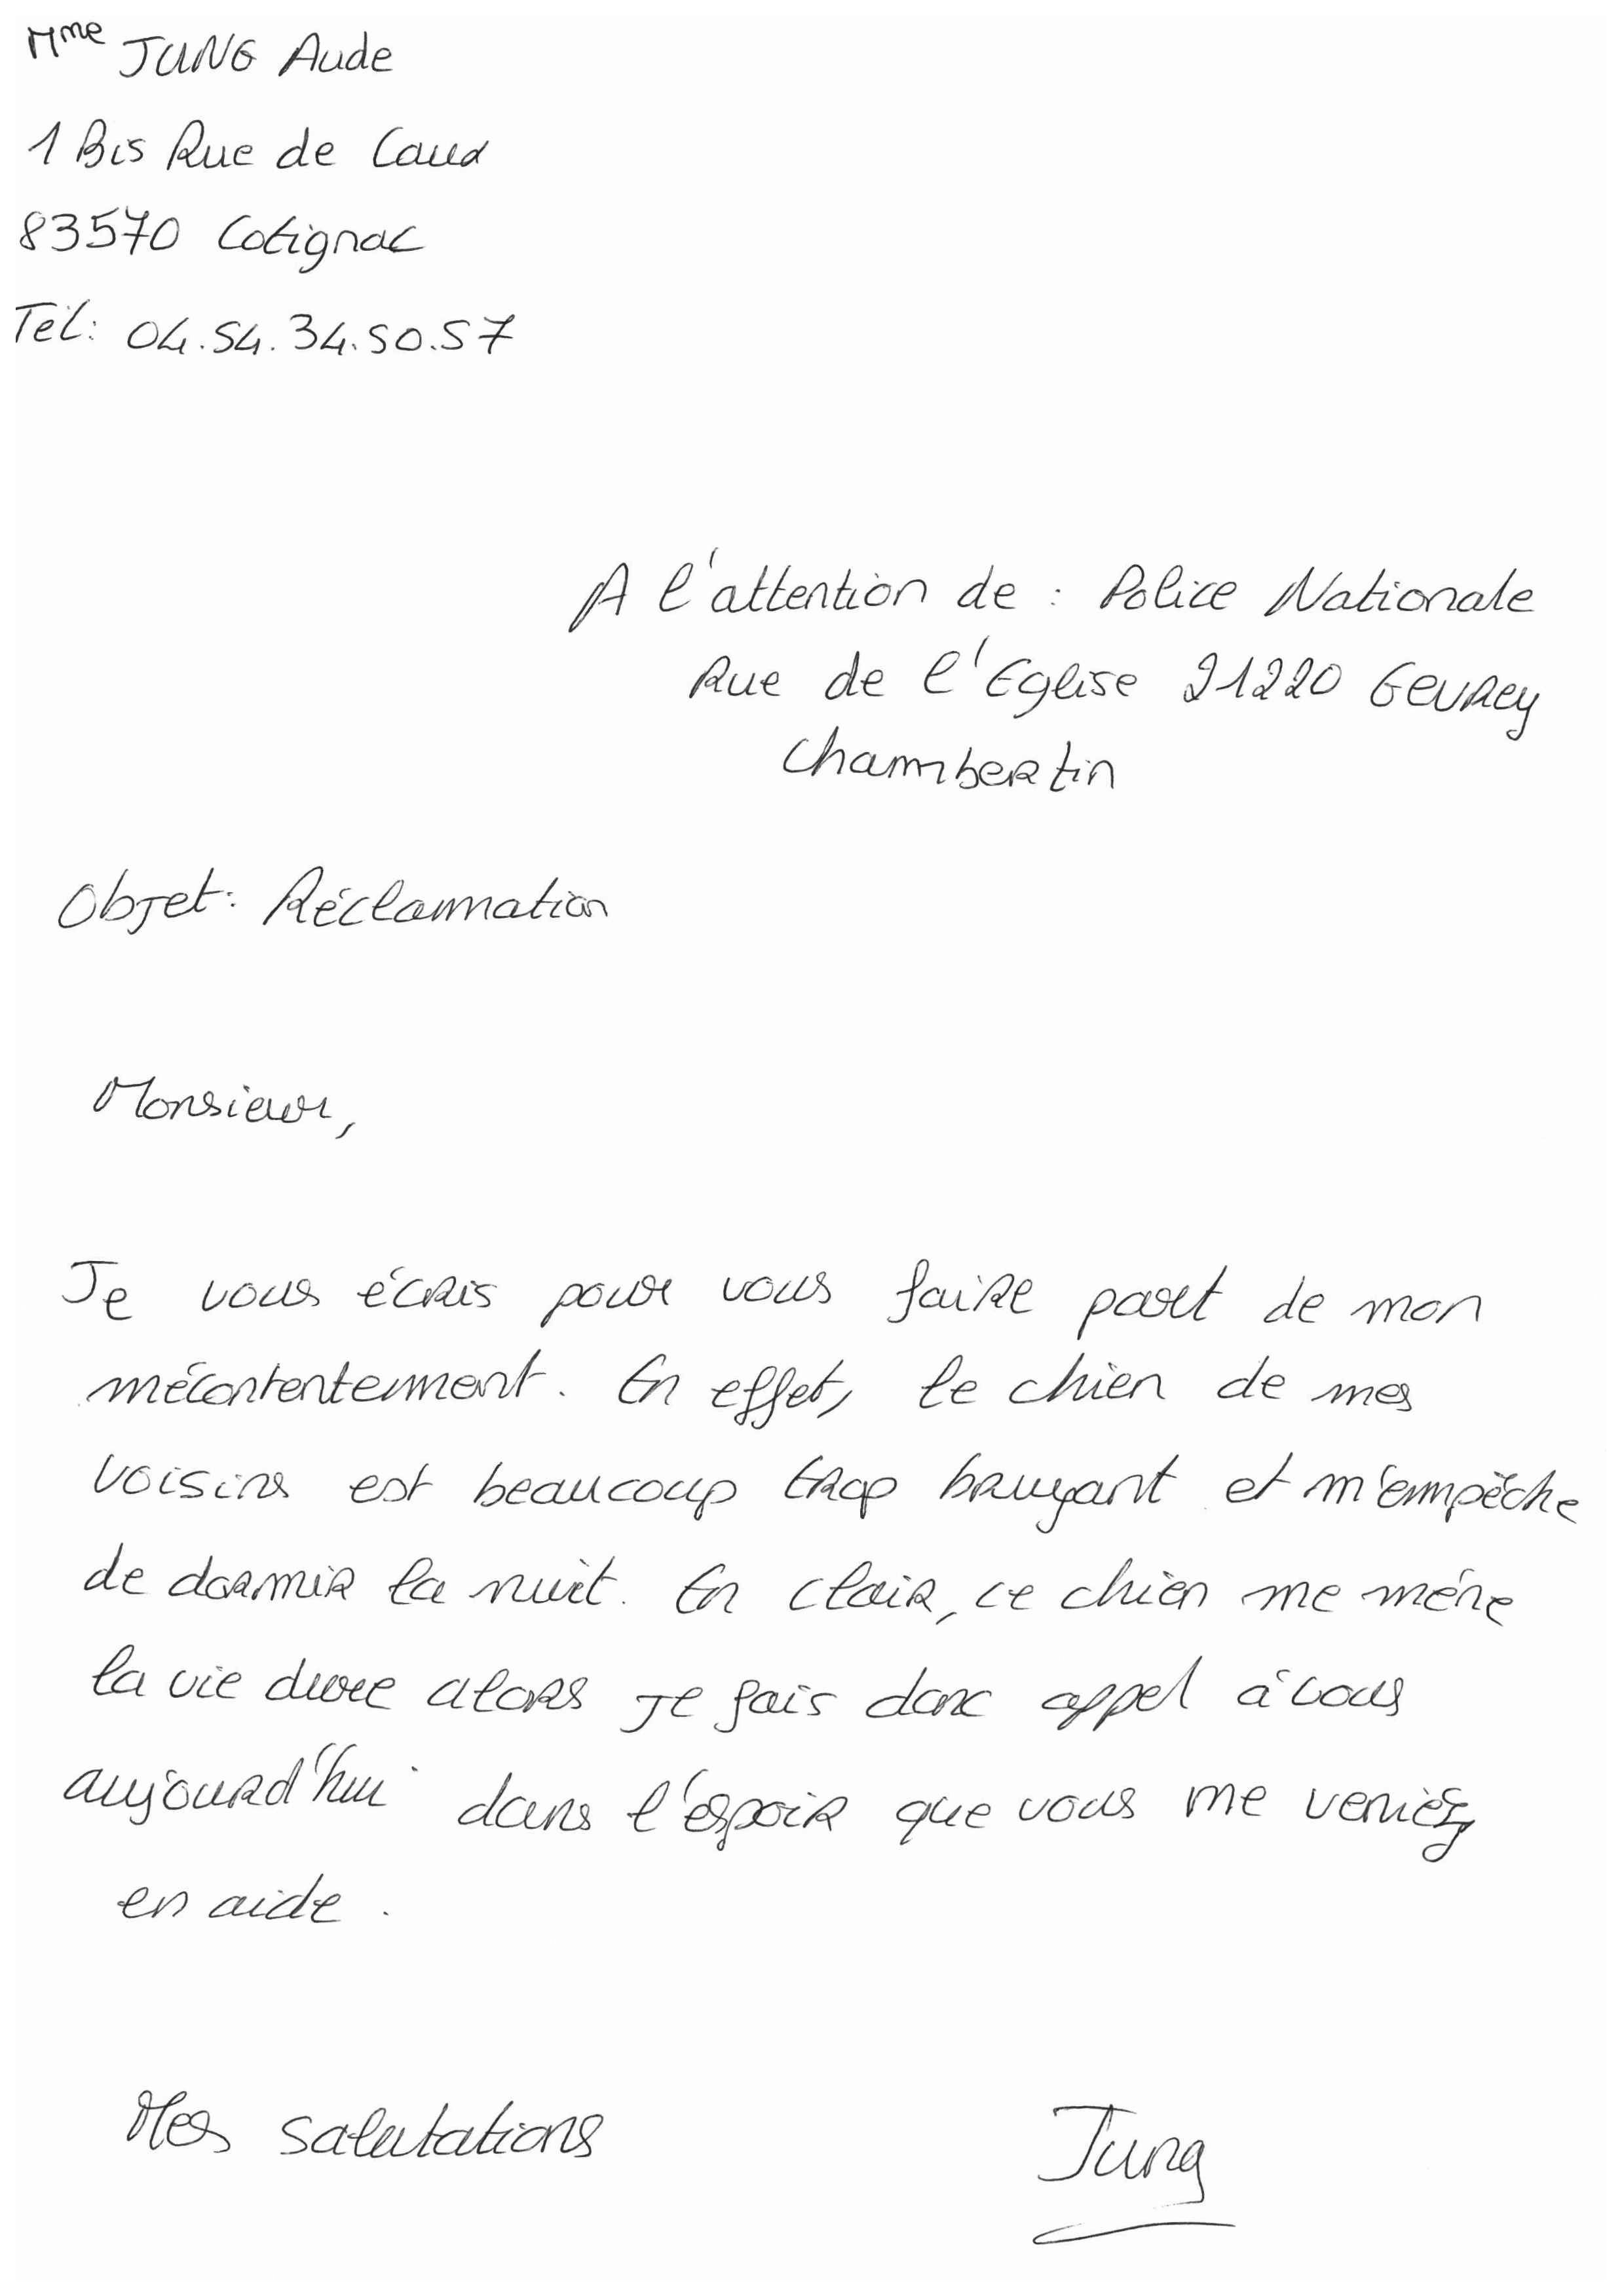 Mme JUNG Aude
1 Bis Rue de Caux
83570 Cotignac
Tél: 04.54.34.50.57
A l'attention de : Police Nationale
Rue de l'Eglise 21220 Gevrey
Chambertin
Objet: Réclamation
Monsieur,
Je vous écris pour vous faire part de mon
mécontentement. En effet, le chien de mes
voisins est beaucoup trop bruyant et m'empêche
de dormir la nuit. En clair, ce chien me méne
la vie dure alors je fais donc appel à vous
aujourd'hui dans l'espoir que vous me veniez
en aide.
Mes salutations
Jung